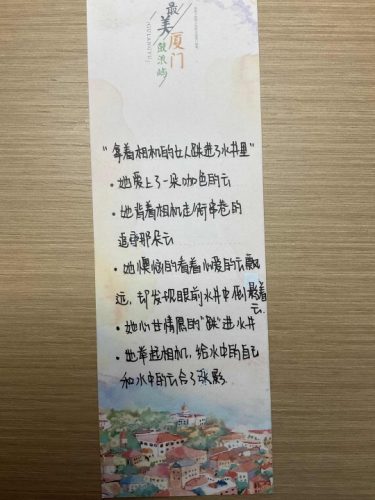 最美
厦门
鼓浪屿
GULANGYU
“拿着相机的女人跌进了水井里”
·她爱上了一朵咖色的云
·她背着相机走街串巷的
追寻那朵云
·她懊恼的看着心爱的云飘
远，却发现眼前水井中倒影着
云.
·她心甘情愿的“跌”进水井
·她举起相机，给水中的自己
和水中的云合了张影.